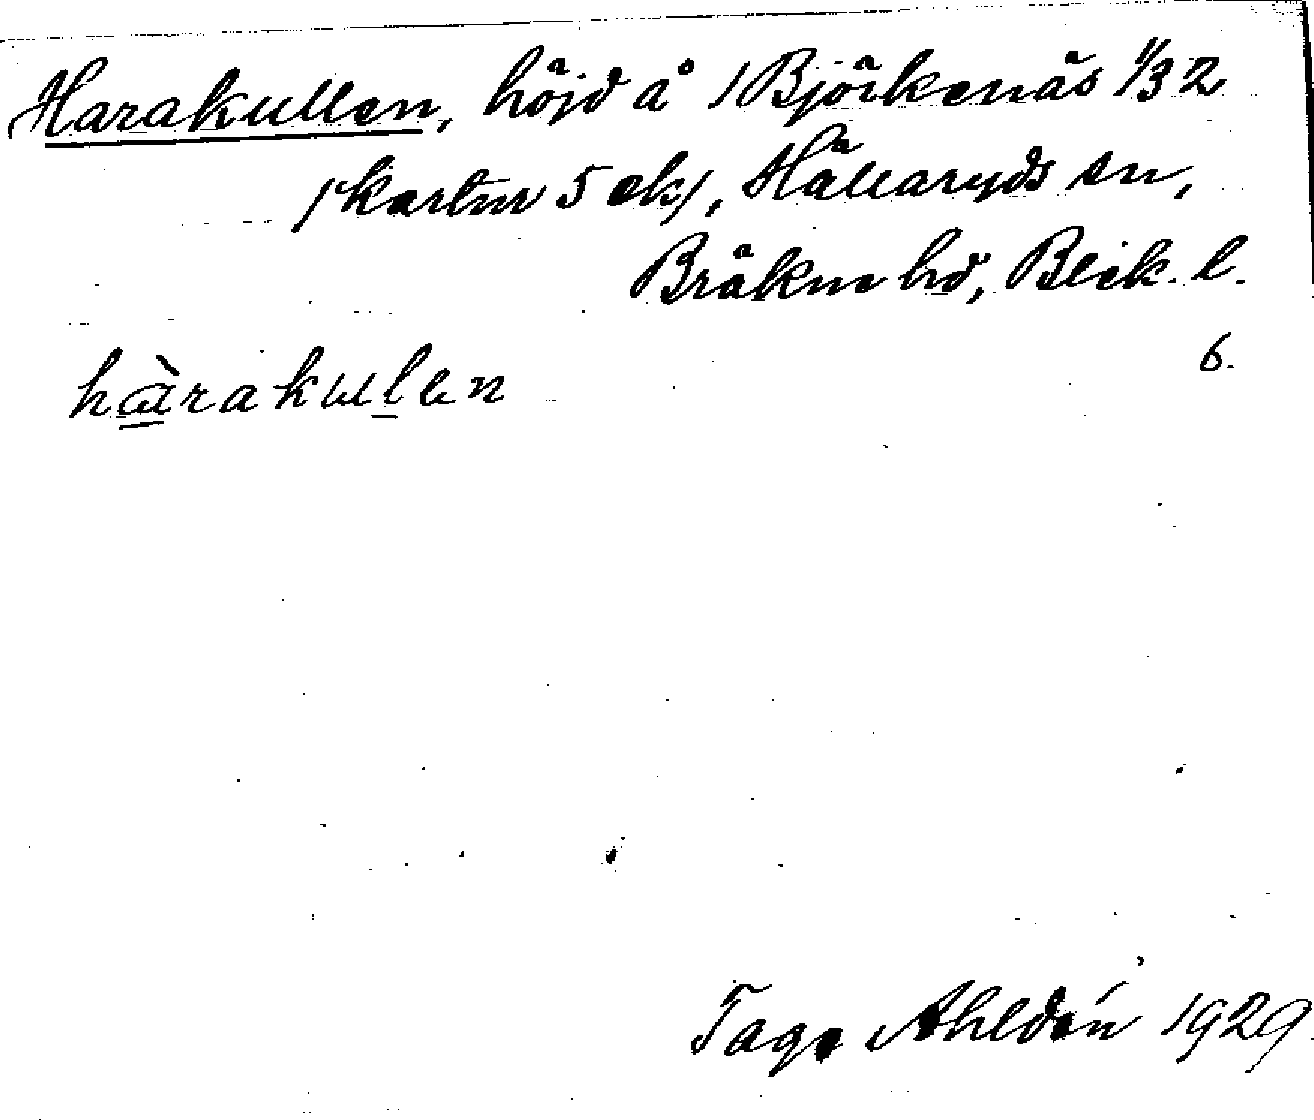 Harakullen, höjd å /Björkenäs 1/32
/kartnr 5 ek/, Hällaryds sn,
Bräkne hd, Blek. l.
6.
hàrakullen
Tage Ahldén 1929